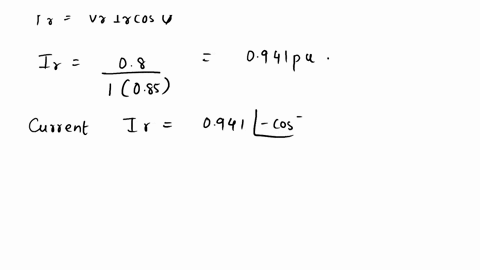 Ir = Vr Ir cos
Ir = 0.8 / 1(0.85) = 0.941 pu.
Current Ir = 0.941 ∠-cos⁻